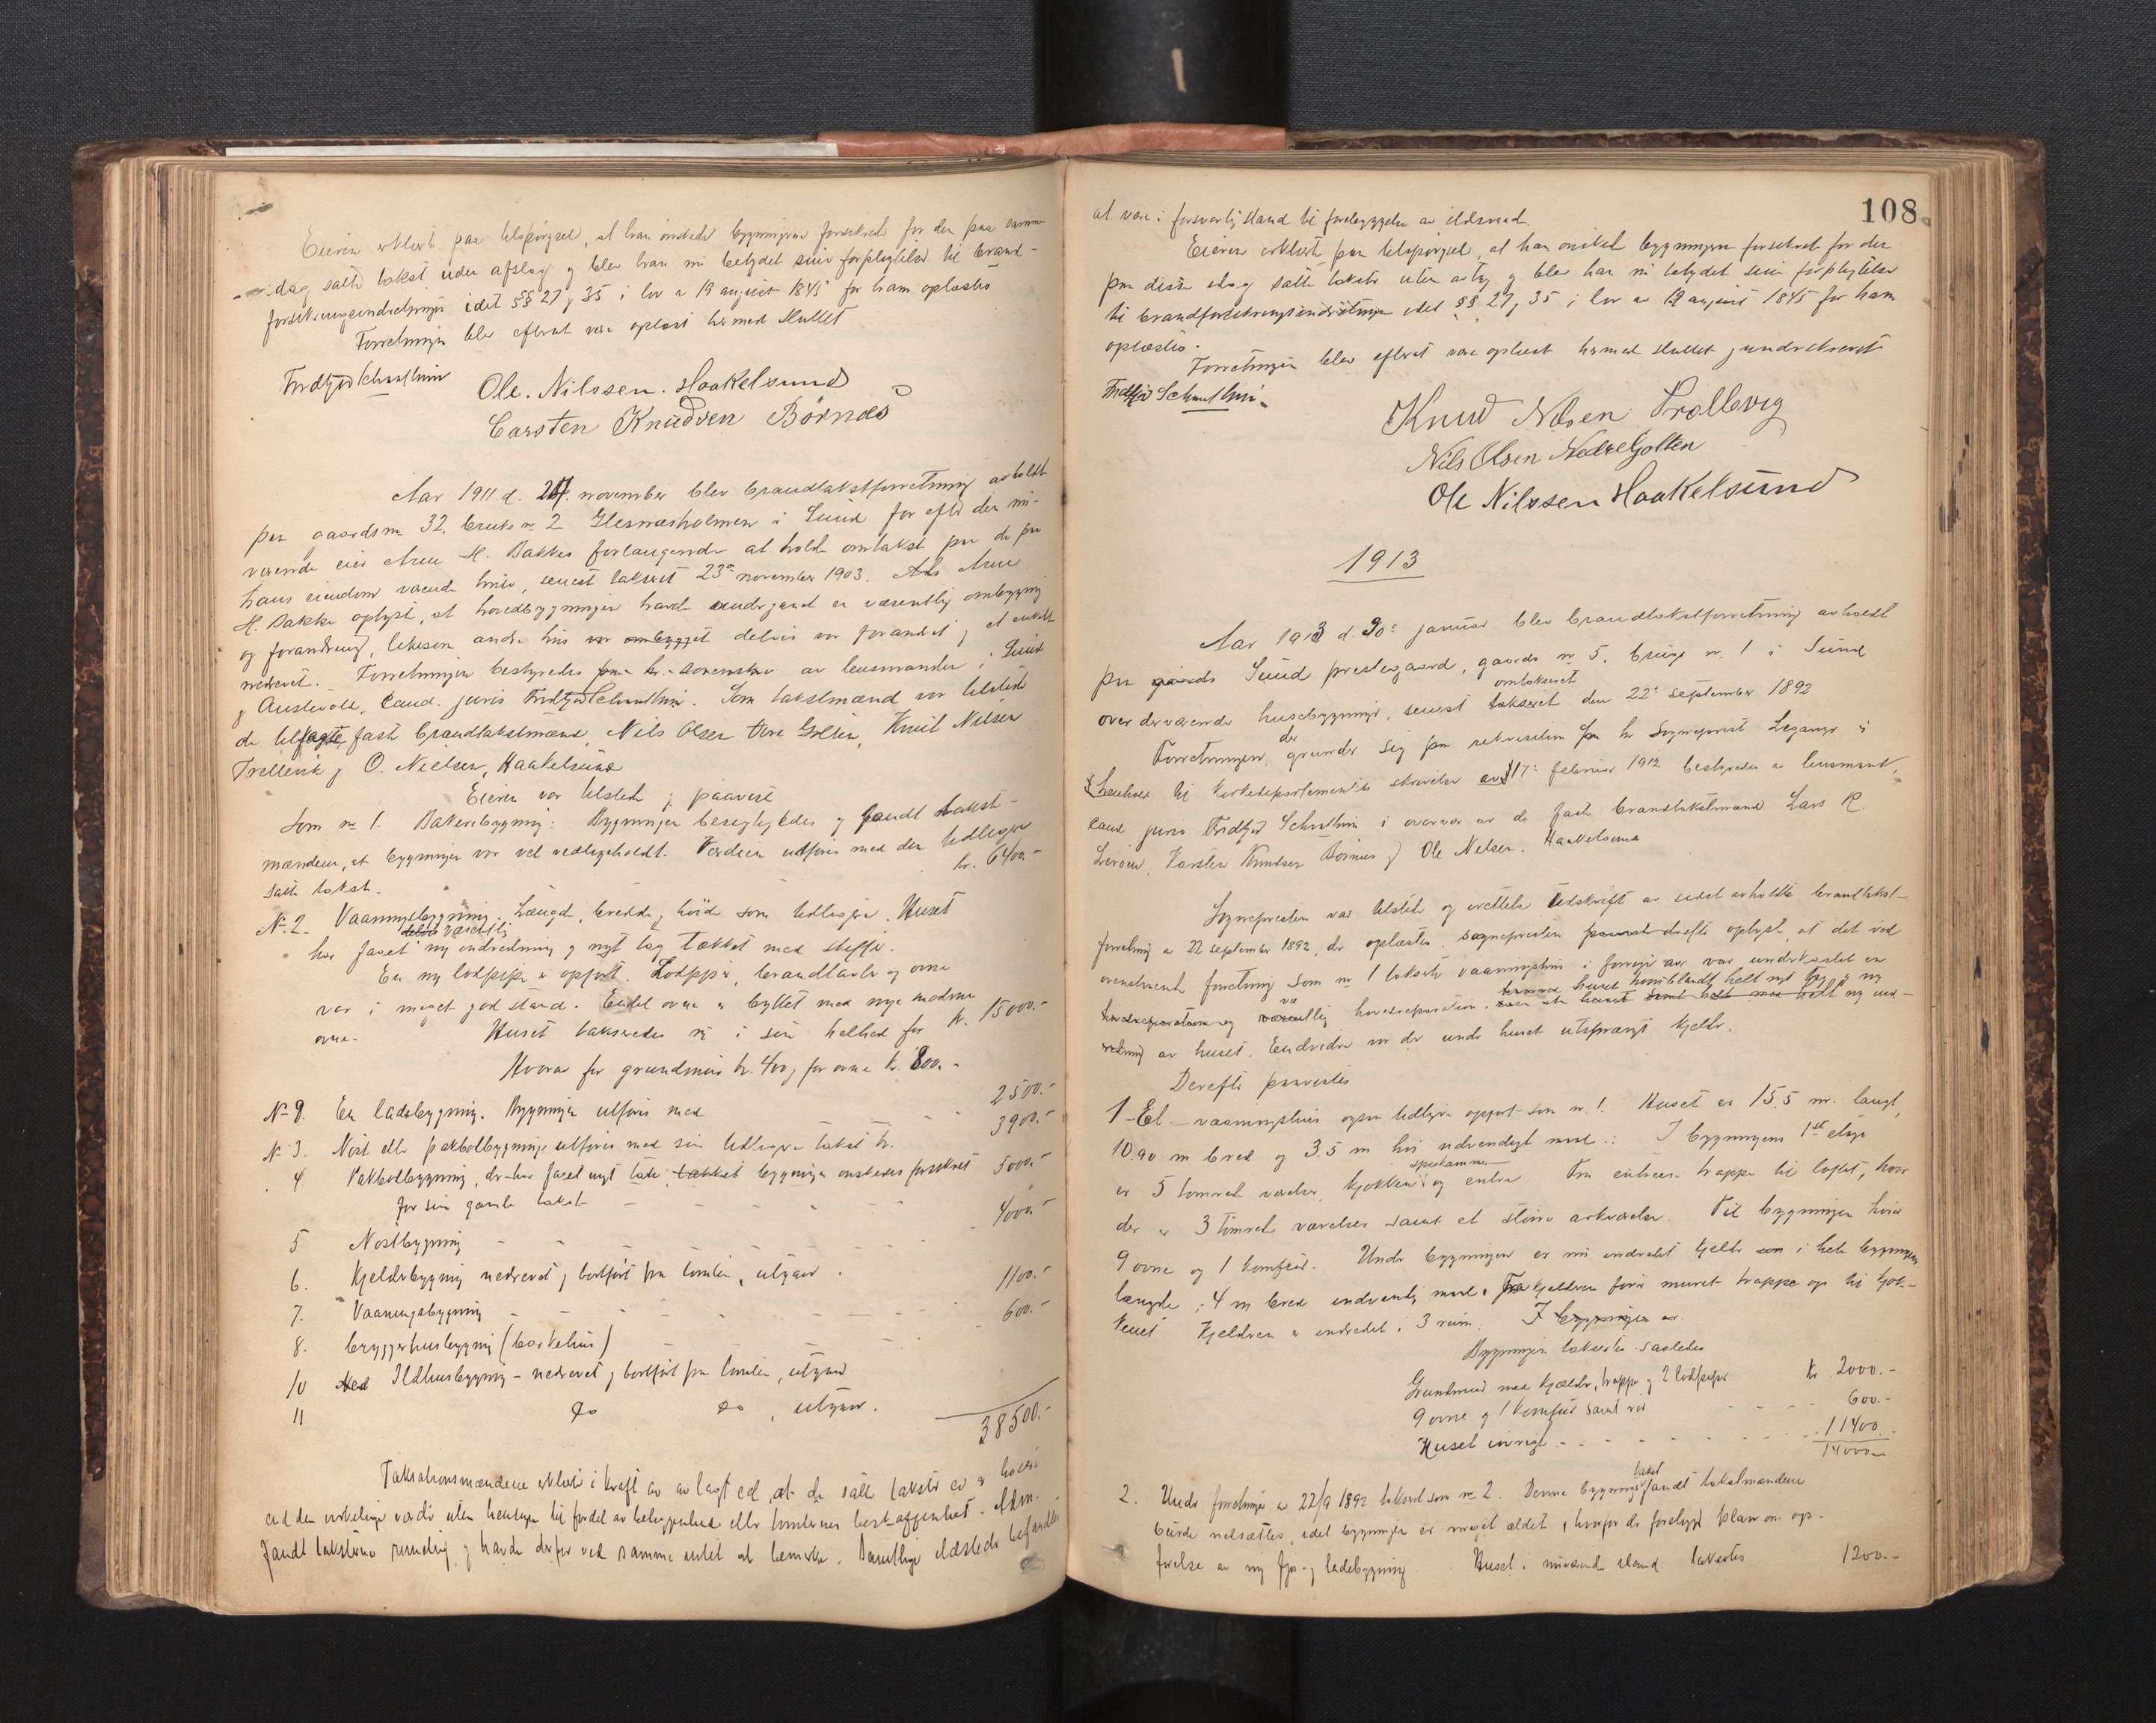 Eieren erklært paa tilspörgsel, at han önskede bygningerne forsikret for den paa samme
dag satte takst uden afslag og blev han nu betydet sine forpligtelser til brand-
forsikringsindretningen idet §§ 27 og 35 i lov a 19 august 1845 for ham oplæstes
Forretningen blev efterat være oplæst hermed sluttet
Fridtjof Schmelthin
Ole. Nilssen. Haakelsund
Carsten Knudsen Börnæs
Aar 1911 d. 24. november blev brandtakstforretning avholdt
paa gaardsnr 32, bruks nr 2 Glesnæsholmen i Sund for efter den nu-
værende eier Arne H. Bakkes forlangende at holde omtakst paa de paa
hans eiendom værende huse, senest takseret 23de november 1903. Arne
H. Bakke oplyst, at hovedbygningen havde undergaaet en væsentlig ombygning
og forandring, likesom andre hus var ombygget delvis var forandret og et enkelt
nedrevet. Forretningen bestyredes av lensmanden i Sund
og Austevold, Cand. juris Fridtjof Schmelthin. Som takstmænd var tilstede
de tilsagte faste brandtakstmænd, Nils Olsen Golten, Knut Nilsen
Trellevik og O. Nielsen, Haakelsund
Eieren var tilstede og paaviste
Som nr 1. Bakeribygning: Bygningen besigtigedes og fandt takst-
mændene, at bygningen var vel vedligeholdt. Værdien utføres med den tidligere
satte takst. kr. 6400.-
No. 2. Vaaningsbygning. Længde, bredde og höide som tidligere. Huset
har faaet ny indredning og nyt tag tækket med skiffer.
En ny lodpipe er opført. Lodpiper, brandtavler og ovne
var i meget god stand. Endel ovne er byttet med nye moderne
ovne. Huset takseredes nu i sin helhed for kr. 15000.-
Hvorav for grundmur kr. 400, for ovne kr. 800.-
No 9. En ladebygning. Bygningen utføres med 2500.-
No 3. Nöst eller pakbolbygning utføres med sin tidligere takst kr. 3900.-
4 Pakbolbygning, der har faaet nyt tak, tækket bygningen önskedes forsikret
for sin gamle takst 5000.-
5 Nöstbygning 4000.-
6. Kjelderbygning nedrevet og bortført fra tomten, utgaar.
7. Vaaningsbygning 1100.-
8. bryggerhusbygning (barkehus) 600.-
10 Ildhusbygning - nedrevet og bortført fra tomten, utgaar
11 do do, utgaar.
38500.-
Taksationsmændene erklært i kraft av avlagt ed, at de satte takster ei er høiere
end den virkelige værdi uten hensyn til fordel av beliggenhed eller tomternes beskaffenhet. Adm.
fandt taksterne rimelig og havde derfor ved samme intet at bemerke. Samtlige ildsteder befandtes
108
at være i forsvarlig stand til forebyggelse av ildsvaade.
Eieren erklært paa tilspörgsel, at han önsket bygningen forsikret for den
paa disse idag satte takster uten avslag og blev han nu betydet sine forpligtelser
til brandforsikringsindretningen idet §§ 27 og 35 i lov av 19 august 1845 for ham
oplæstes.
Forretningen blev efterat være oplæst hermed sluttet og underskrevet
Fridtjof Schmelthin.
Knud Nilsen Trollevig
Nils Olsen Nedre Golten
Ole Nilssen Haakelsund
1913
Aar 1913 d. 30te januar blev brandtakstforretning avholdt
paa Sund prestegaard, gaards nr 5, bruks nr. 1 i Sund
omtakseret
over derværende husebygninger, senest takseret den 22de september 1892
Forretningen, der grunder sig paa rekvisition fra hr Sogneprest Legange i
henhold til Kirkedepartementets skrivelse av 17de februar 1912 bestyredes av lensmand,
cand juris Fridtjof Schmelthin i overvær av de faste brandtakstmænd Lars R.
Leröen, Karsten Knudsen Börnæs og Ole Nilsen. Haakelsund
Sognepresten var tilstede og fremlagde utskrift av sidst avholdte brandtakst-
forretning av 22 september 1892, der oplæstes. Sognepresten derefter oplyst, at det ved
ovenstaaende forretning som nr 1 takserte vaaningshus i forrige aar var underkastet en
huset helt nyt tag og ny
væsentlig hovedreparation, helt ny ind-
redning av huset. Endvidere var der under huset utsprængt kjelder.
Derefter paavistes
1 Et vaaningshus ogsaa tidligere opført som nr. 1. Huset er 15.5 m. langt,
10.90 m bred og 3.5 m höi utvendigt maal. I bygningens 1ste etage
spiskammer
er 5 tömrede værelser, kjøkken og entre. Fra entreen trappe til loftet, hvor
der er 3 tömrede værelser samt et större arkværelse. Til bygningen hörer
9 ovne og 1 komfur. Under bygningen er nu indredet kjelder i hele bygningens
længde, 4 m bred indvendig maal. Fra kjelderen förer muret trappe op til kjök-
kenet. Kjelderen er indredet i 3 rum. I bygningen er
Bygningen taksertes saaledes
Grundmur med kjælder, trappe og 2 lodpiper kr 2000.-
9 ovne og 1 komfur samt rör 600.-
Huset iövrigt 11400.
14000.-
2. Under forretning av 22/9 1892 takseret som nr 2. Denne bygnings takst fandt takstmændene
burde nedsættes, idet bygningen er meget ældet, hvorfor der foreligger plan om op-
førelse av ny fjös- og ladebygning. Huset i nuværende stand taksertes 1200.-